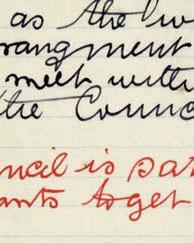 as the
rangment
meet with
the Counc
uncil is sat
ants to get